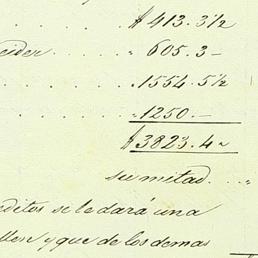 $ 413. 3½
. . . . . . „ 605. 3 -
. . . . . . „ 1554. 5½
. . . . . . „ 1250. —
$ 3823. 4 „
su mitad . . „
se le dará una
y que de los demas